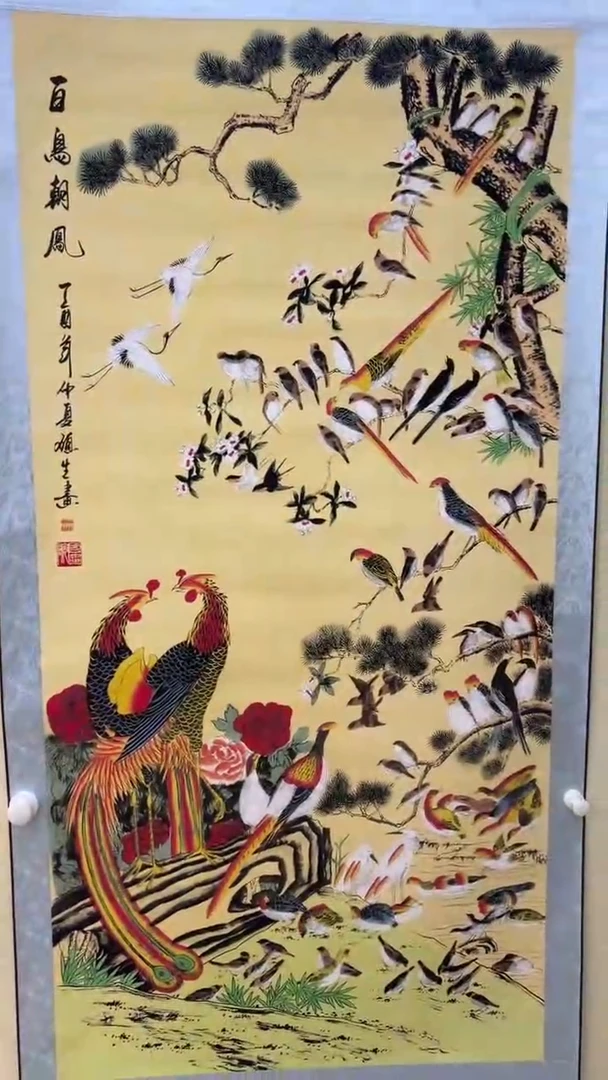 百鳥朝鳳
丁酉年仲夏生畫